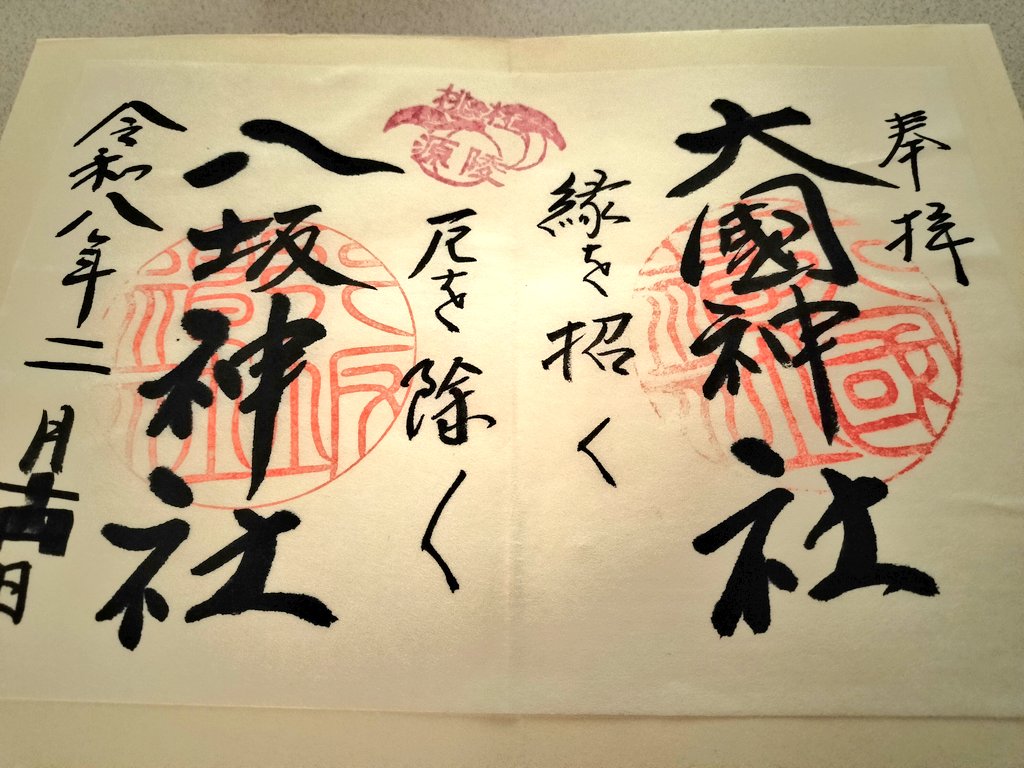 奉拝
大國神社
縁を招く
桃江
源陵
厄を除く
八坂神社
令和八年二月
日